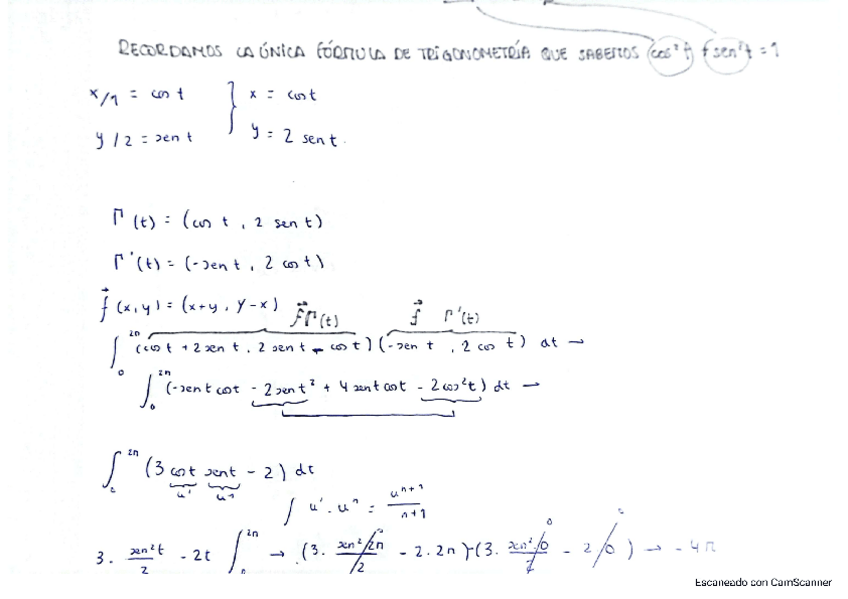 RECORDAMOS LA ÚNICA FÓRMULA DE TRIGONOMETRÍA QUE SABEMOS cos²t + sen²t = 1
x/1 = cos t } x = cos t
y/2 = sen t y = 2 sen t.
Γ(t) = (cos t, 2 sen t)
Γ'(t) = (-sen t, 2 cos t)
f⃗(x,y) = (x+y, y-x) f⃗Γ(t) f⃗ Γ'(t)
∫₀^2π (cos t + 2 sen t, 2 sen t - cos t)(-sen t, 2 cos t) dt →
∫₀^2π (-sen t cos t - 2 sen t² + 4 sen t cos t - 2 cos²t) dt →
∫^2π (3 cos t sen t - 2) dt
u' u¹
∫ u'.uⁿ = uⁿ⁺¹/n+1
3. sen²t/2 - 2t ∫₀^2π → (3. sen²2π/2 - 2.2π)-(3. sen²0/2 - 2/0) → -4π
Escaneado con CamScanner